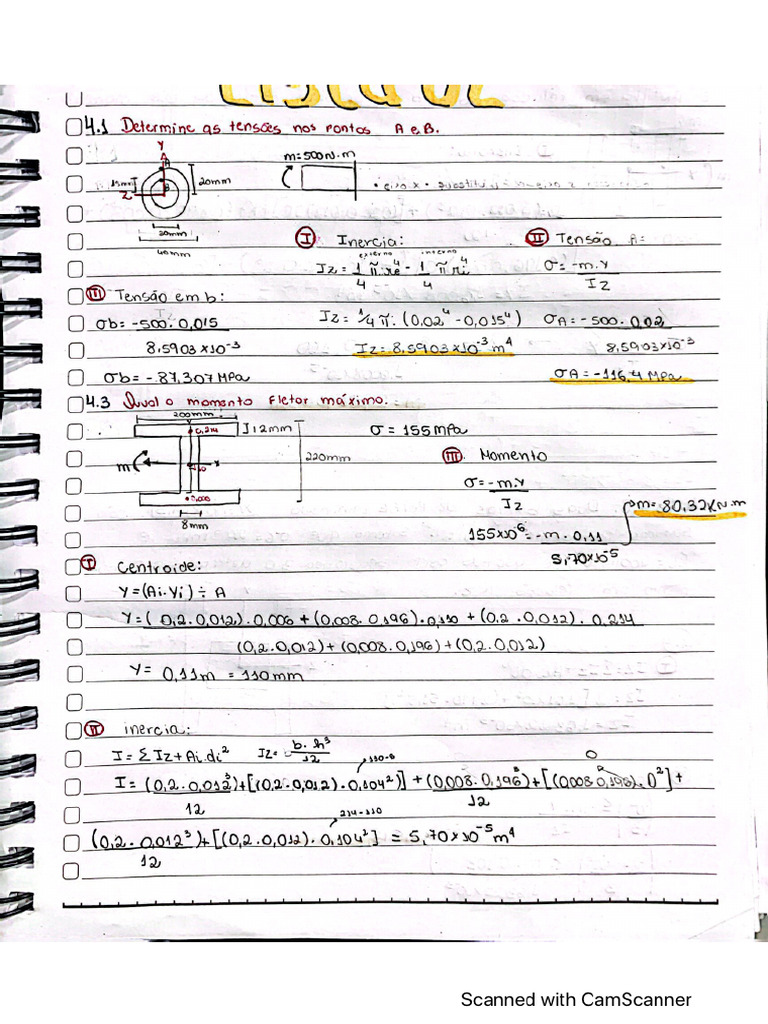 4.1 Determine as tensões nos pontos A e B.
Y
A
B
Z
15mm
20mm
30mm
40mm
m=500N.m
I Inercia:
II Tensão A=
externo interno
Iz = 1/4 π.re⁴ - 1/4 π ri⁴
σ = -m.Y / Iz
III Tensão em b:
Iz
σb= -500.0,015
Iz= 1/4 π. (0,02⁴ - 0,015⁴)
σA= -500.0,02
8,5903x10⁻³
Iz= 8,5903x10⁻³ m⁴
8,5903x10⁻³
σb= -87,307 MPa
σA= -116,4 MPa
4.3 Qual o momento Fletor máximo.
200mm
0,214
I 12mm
σ = 155mPa
m
x
220mm
0,006
8mm
III Momento
σ= -m.Y
Iz
155x10⁶= -m.0,11
5,70x10⁻⁵
m= 80,32KN.m
I Centroide:
Y=(Ai.Yi) ÷ A
Y=( 0,2.0,012).0,006 + (0,008.0,196).0,110 + (0,2.0,012).0,214
(0,2.0,012)+(0,008.0,196)+(0,2.0,012)
Y= 0,11m = 110mm
II inercia:
I= Σ Iz+Ai.di² Iz= b.h³/12
110-6
0
I= (0,2.0,012³)+[(0,2.0,012).0,104²)] + (0,008.0,196³)+[(0,008.0,196).0²]+
12 12
214-110
(0,2.0,012³)+[(0,2.0,012).0,104²] = 5,70x10⁻⁵m⁴
12
Scanned with CamScanner